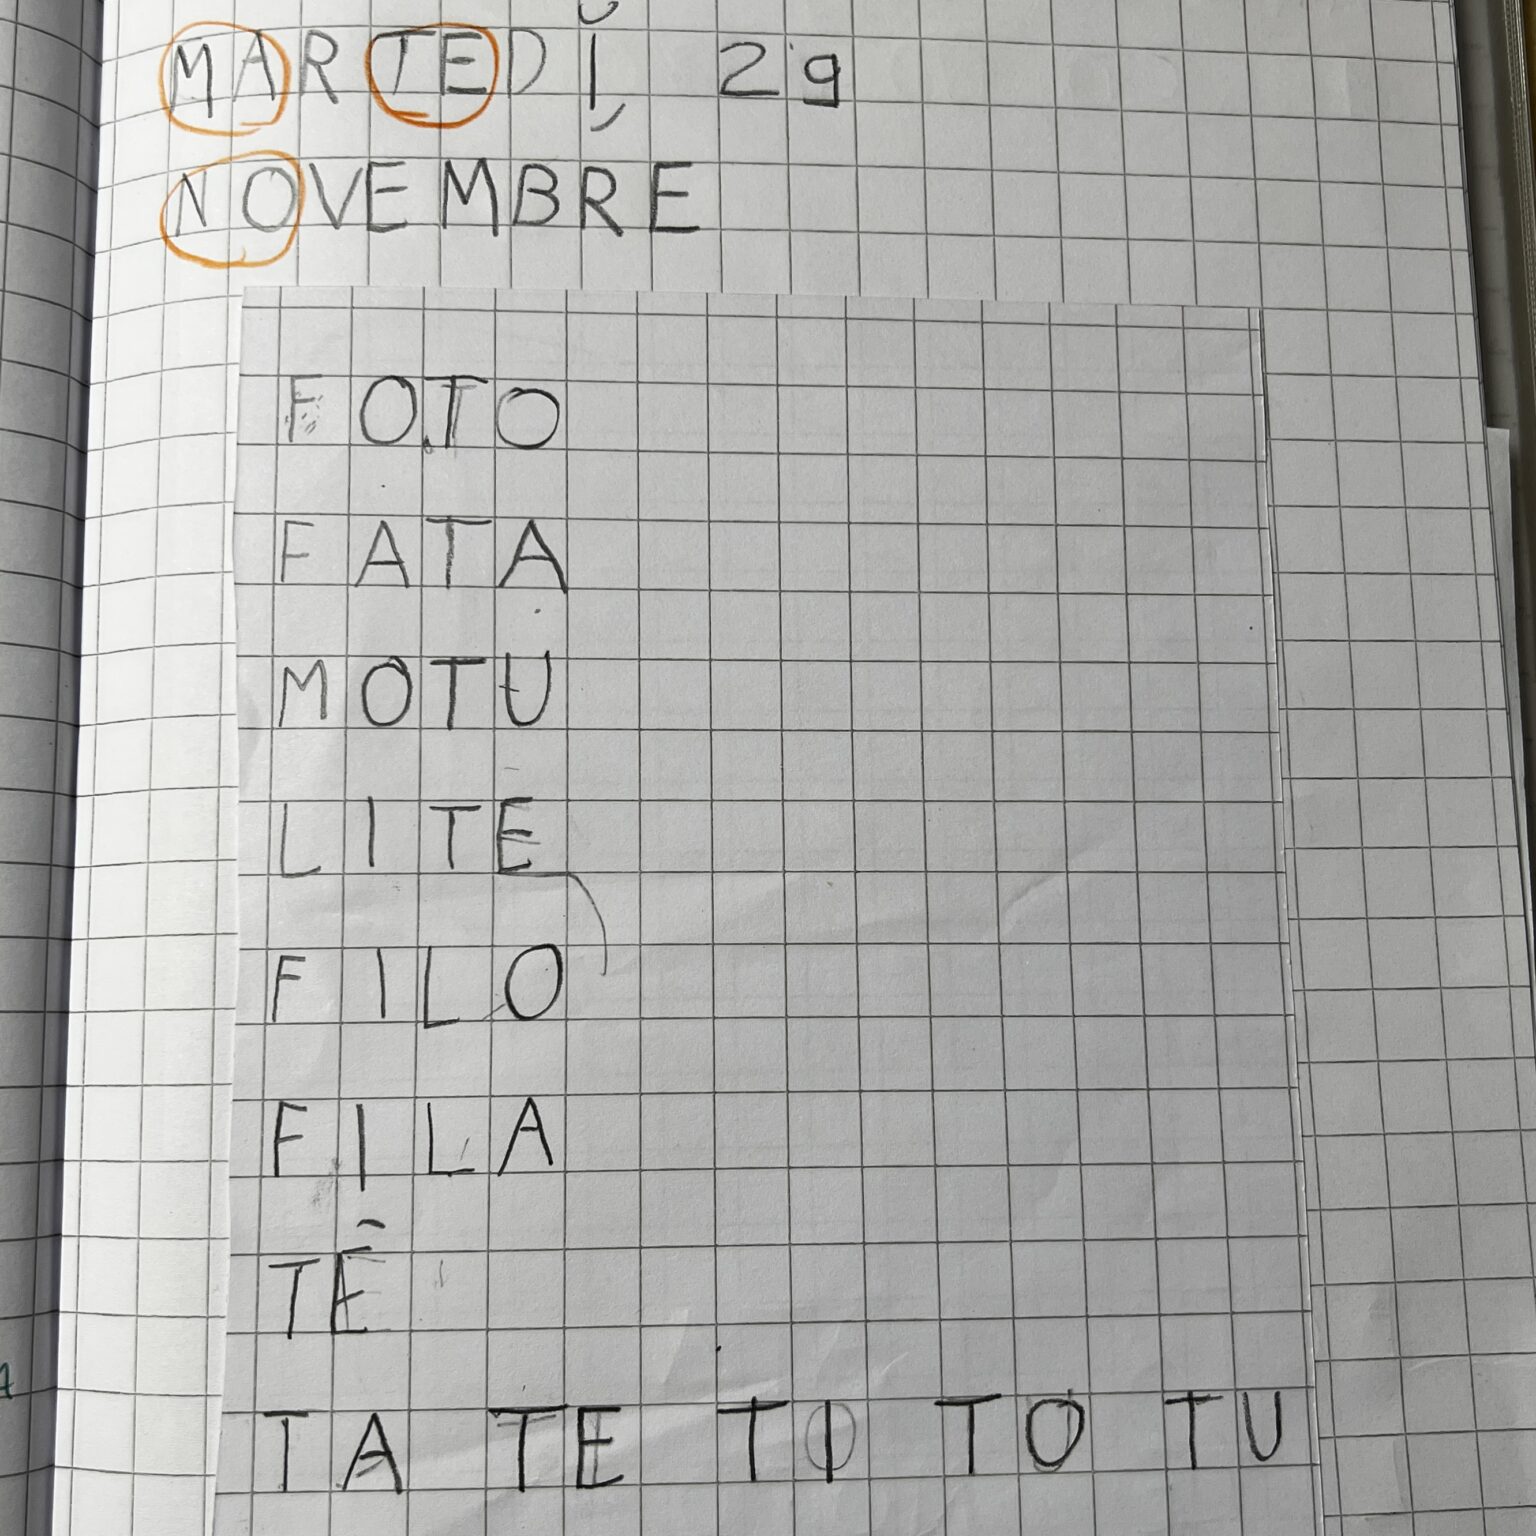 MARTEDÌ 29
NOVEMBRE
FOTO
FATA
MOTU
LITE
FILO
FILA
TÈ
TA TE TI TO TU